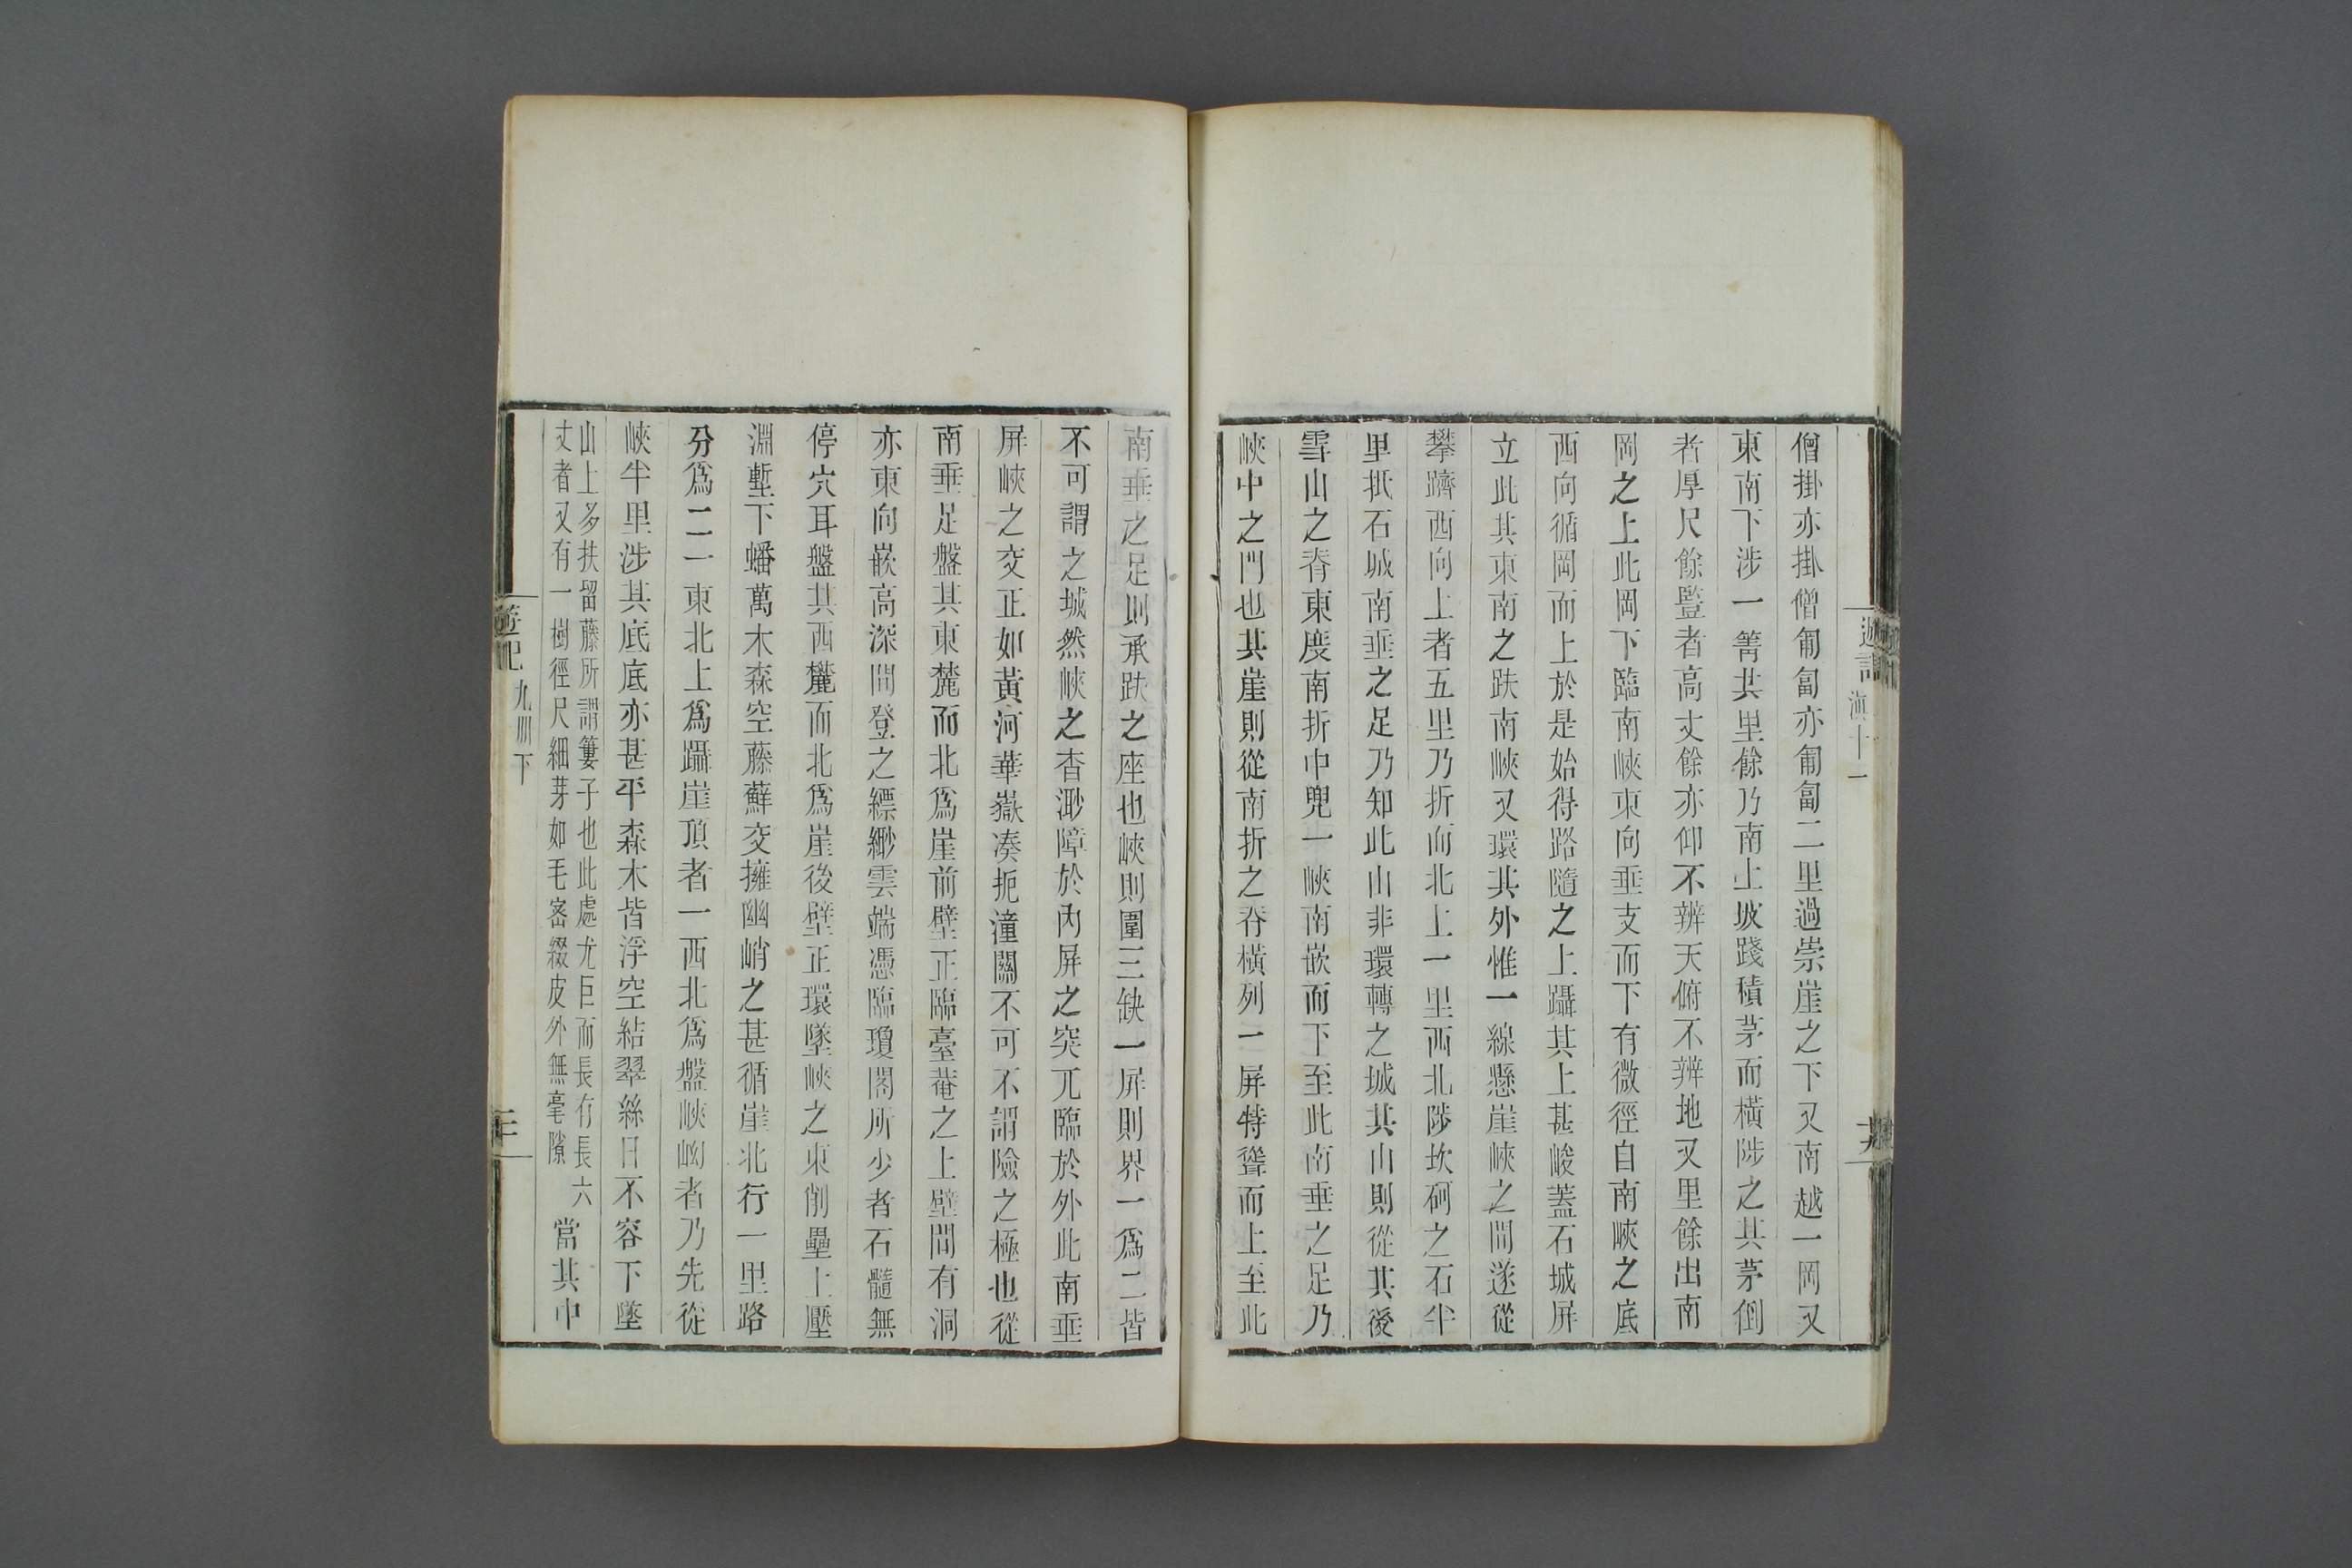 遊記 滇十一
僧掛亦掛僧匍匐亦匍匐二里過崇崖之下又南越一岡又
東南下涉一箐共里餘乃南上坡踐積茅而橫陟之其茅倒
者厚尺餘竪者高丈餘亦仰不辨天俯不辨地又里餘出南
岡之上此岡下臨南峽東向垂支而下有微徑自南峽之底
西向循岡而上於是始得路隨之上躡其上甚峻蓋石城屏
立此其東南之趺南峽又環其外惟一線懸崖峽之間遂從
攀躋西向上者五里乃折而北上一里西北陟坎坷之石半
里抵石城南垂之足乃知此山非環轉之城其山則從其後
雪山之脊東度南折中兜一峽南嵌而下至此南垂之足乃
峽中之門也其崖則從南折之脊橫列一屏特聳而上至此
南垂之足則承趺之座也峽則圍三缺一屏則界一爲二皆
不可謂之城然峽之杳渺障於內屏之突兀臨於外此南垂
屏峽之交正如黃河華嶽湊扼潼關不可不謂險之極也從
南垂足盤其東麓而北爲崖前壁正臨臺菴之上壁間有洞
亦東向嵌高深間登之縹緲雲端憑臨瓊閣所少者石髓無
停穴耳盤其西麓而北爲崖後壁正環墜峽之東削壘上壓
淵塹下蟠萬木森空藤蘚交擁幽峭之甚循崖北行一里路
分爲二一東北上爲躡崖頂者一西北爲盤峽坳者乃先從
峽半里涉其底底亦甚平森木皆浮空結翠絲日不容下墜
山上多扶留藤所謂簍子也此處尤巨而長有長六
丈者又有一樹徑尺細芽如毛密綴皮外無毫隙
當其中
遊記 九 下